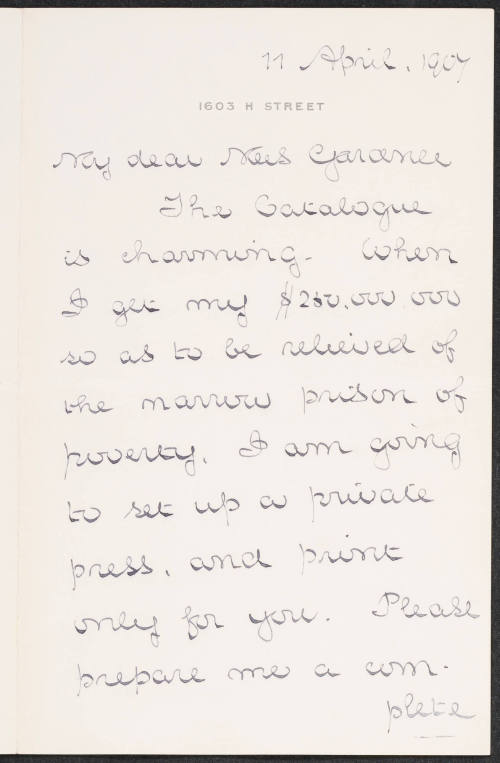 11 April, 1907
1603 H STREET
My dear Mrs Gardner
The Catalogue
is charming. When
I get my $250.000.000
so as to be relieved of
the narrow prison of
poverty, I am going
to set up a private
press, and print
only for you. Please
prepare me a com-
plete